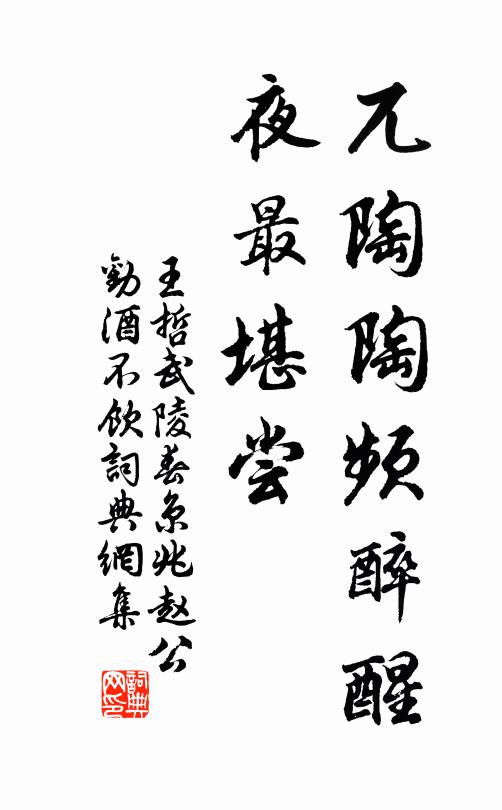 兀陶陶頻醉醒
夜最堪尝
王哲武陵春京兆赵公
勸酒不飲詞典網集
詞典网印